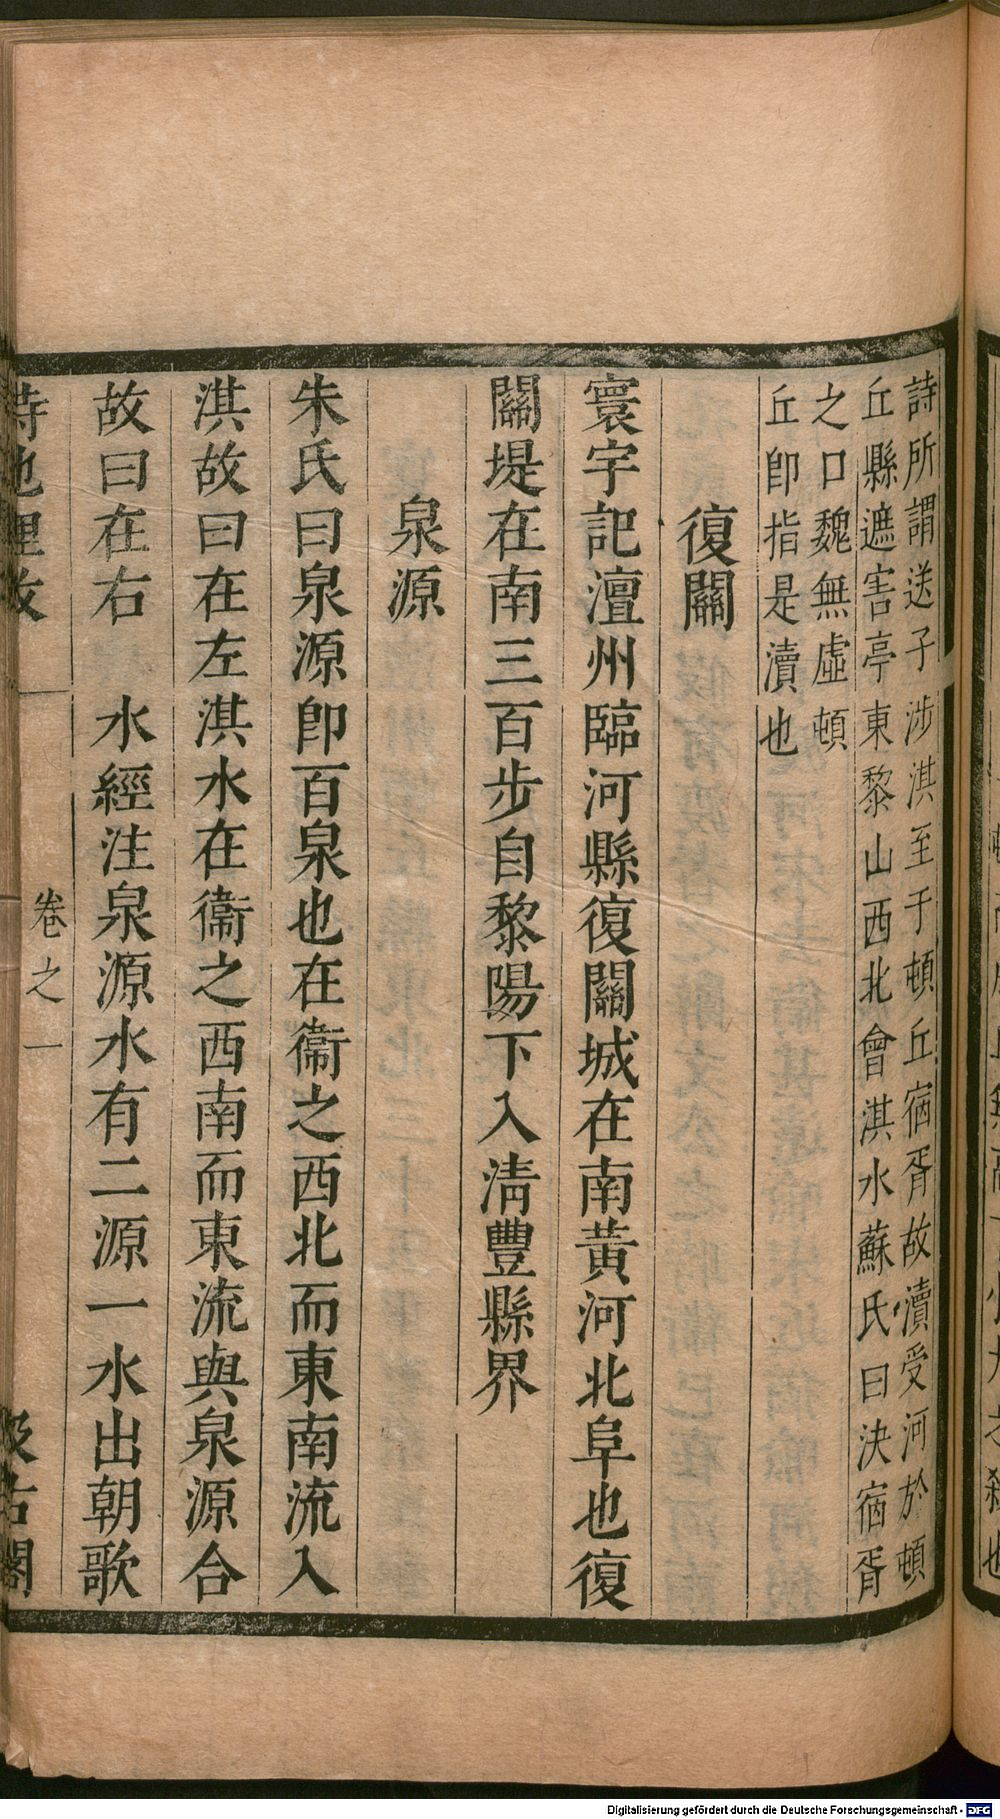 詩所謂送子涉淇至于頓丘宿胥故瀆受河於頓
丘縣遮害亭東黎山西北會淇水蘇氏曰決宿胥
之口魏無虛頓
丘卽指是瀆也
復關
寰宇記澶州臨河縣復關城在南黃河北阜也復
關堤在南三百步自黎陽下入清豐縣界
泉源
朱氏曰泉源卽百泉也在衞之西北而東南流入
淇故曰在左淇水在衞之西南而東流與泉源合
故曰在右 水經注泉源水有二源一水出朝歌
詩地理攷 卷之一 汲古閣
Digitalisierung gefördert durch die Deutsche Forschungsgemeinschaft - DFG